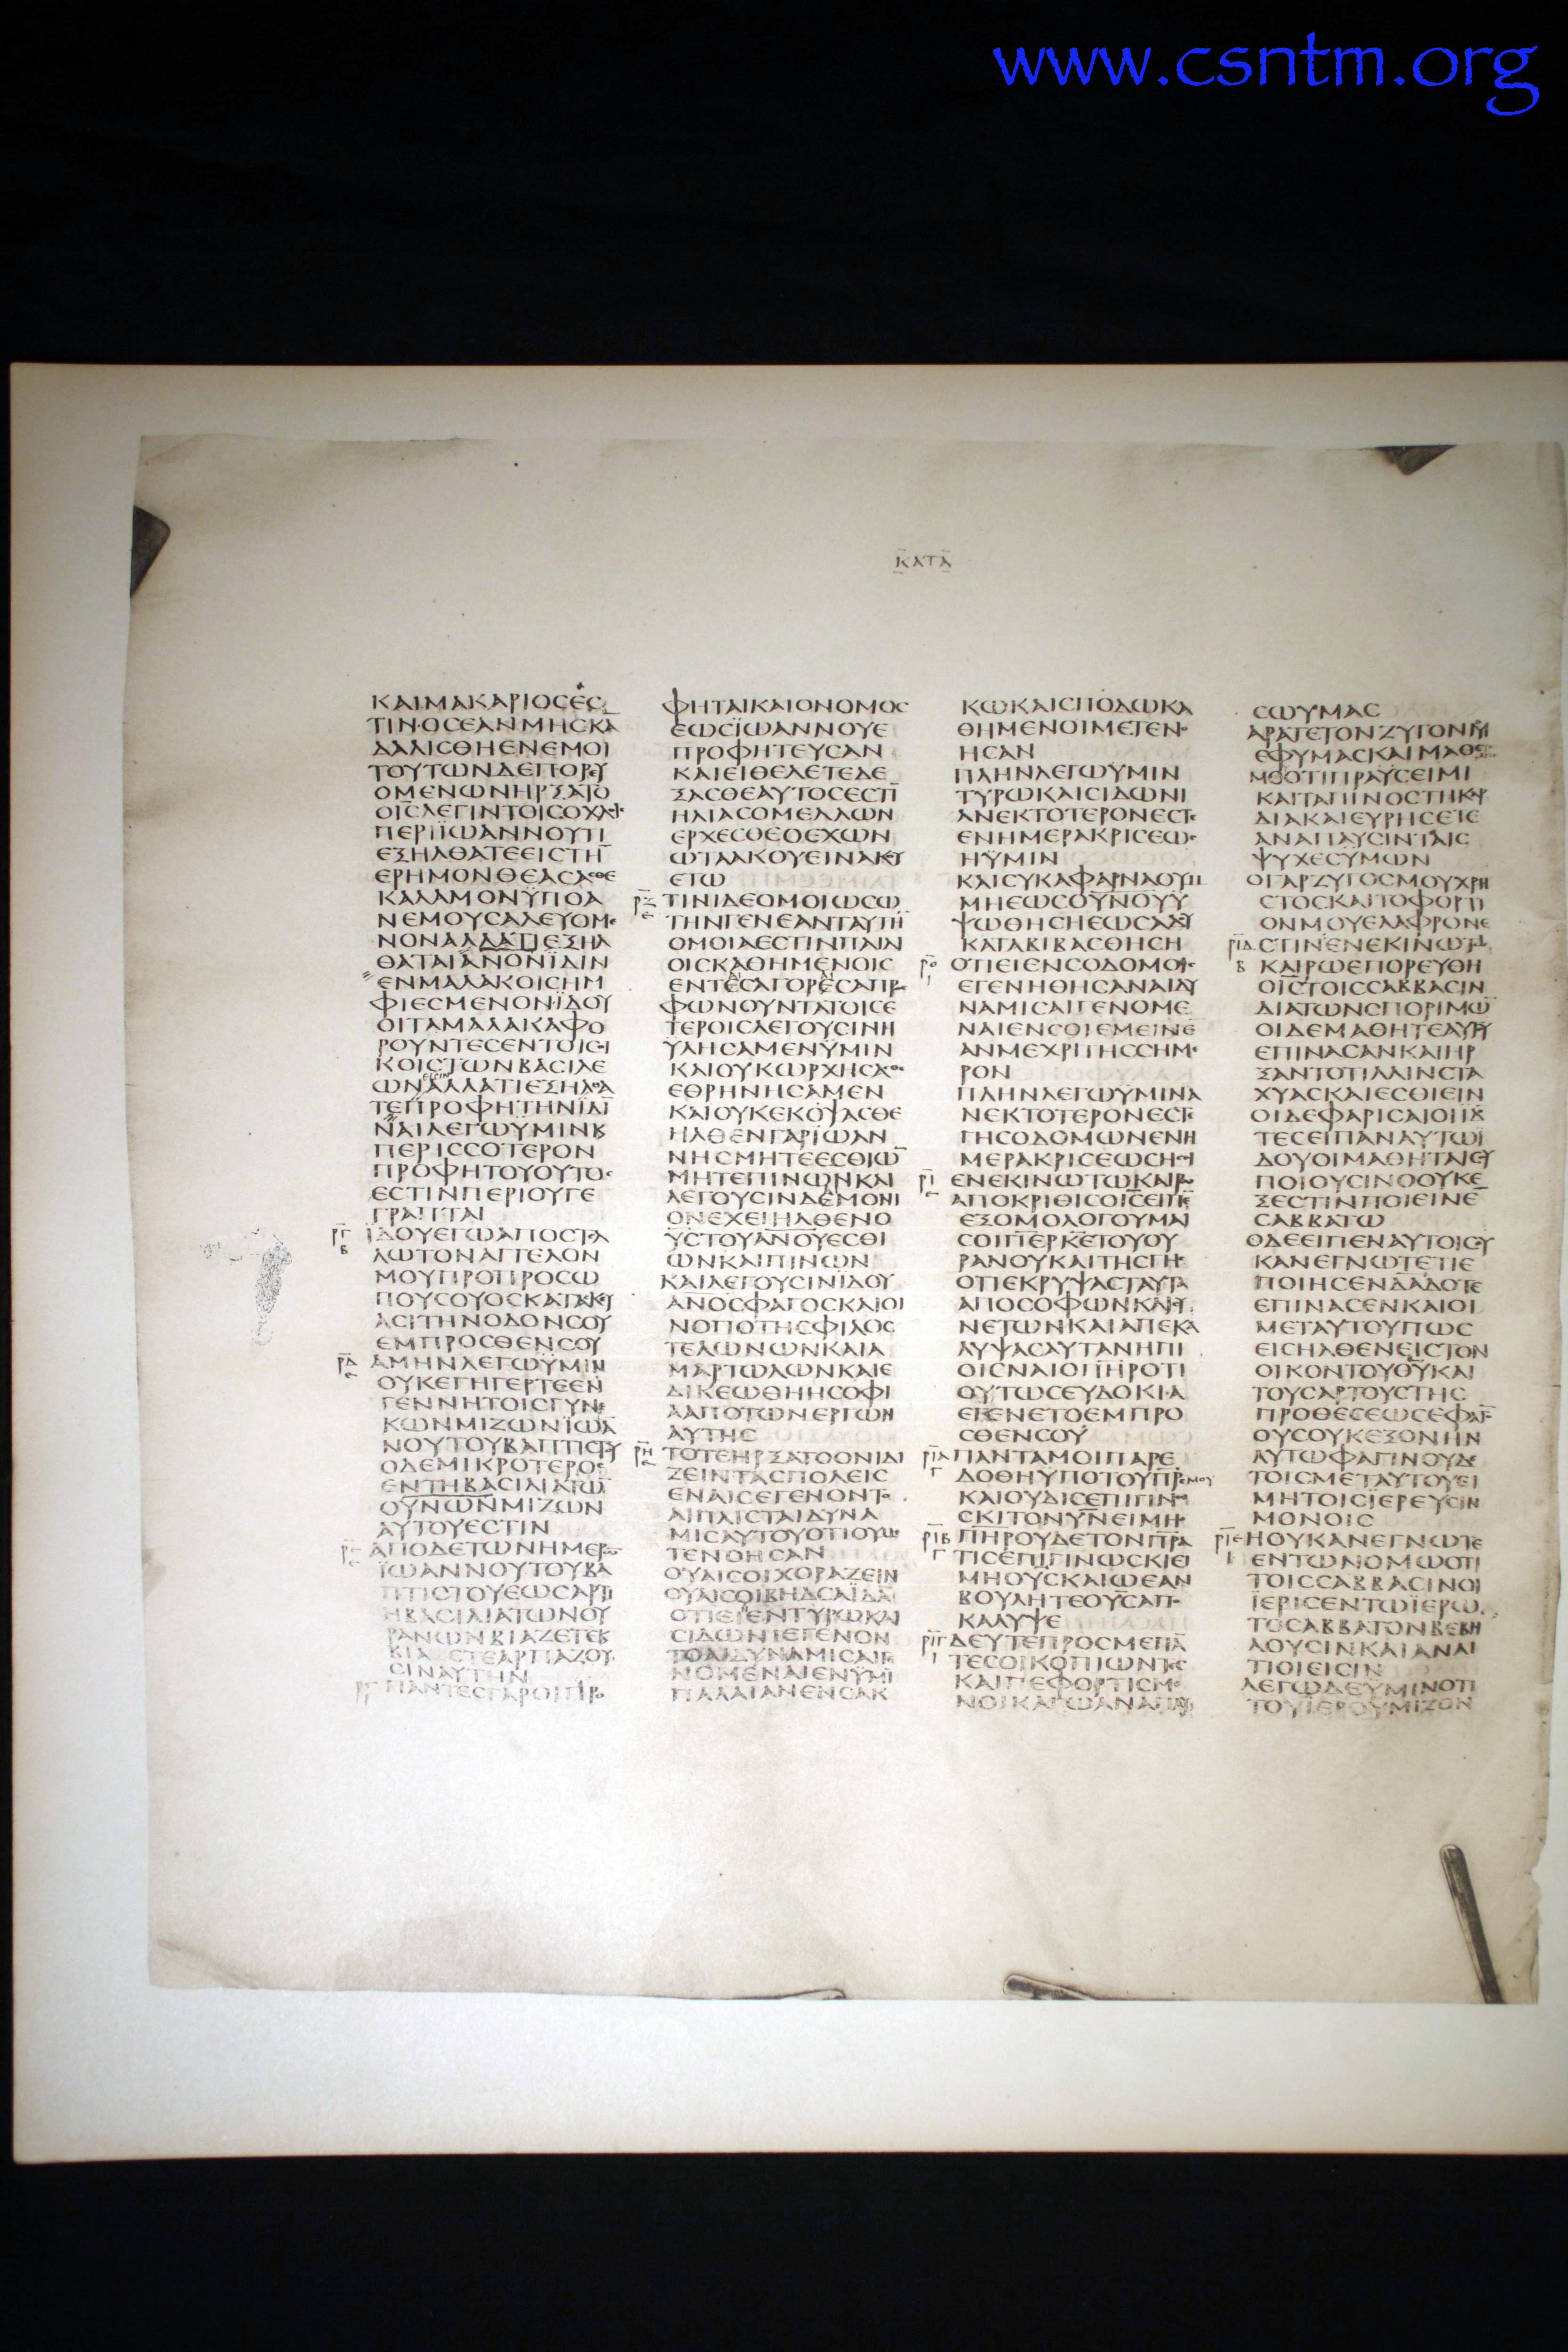 www.csntm.org
ΚΑΤΑ
ΚΑΙΜΑΚΑΡΙΟϹΕϹ
ΤΙΝΟϹΕΑΝΜΗϹΚΑ
ΔΑΛΙϹΘΗΕΝΕΜΟΙ
ΤΟΥΤΩΝΔΕΠΟΡΕΥ
ΟΜΕΝΩΝΗΡΞΑΤΟ
ΟΙϹΛΕΓΙΝΤΟΙϹΟΧΛΟΙ
ΠΕΡΙΪΩΑΝΝΟΥΤΙ
ΕΞΗΛΘΑΤΕΕΙϹΤΗ
ΕΡΗΜΟΝΘΕΑϹΑϹΘΕ
ΚΑΛΑΜΟΝΫΠΟΑ
ΝΕΜΟΥϹΑΛΕΥΟΜΕ
ΝΟΝΑΛΛΑΤΙΕΞΗΛ
ΘΑΤΑΙΑΝΟΝΪΔΙΝ
ΕΝΜΑΛΑΚΟΙϹΗΜ
ΦΙΕϹΜΕΝΟΝΪΔΟΥ
ΟΙΤΑΜΑΛΑΚΑΦΟ
ΡΟΥΝΤΕϹΕΝΤΟΙϹΟΙ
ΚΟΙϹΤΩΝΒΑϹΙΛΕ
ΕΙϹΙΝ
ΩΝΑΛΛΑΤΙΕΞΗΛΘΑ
ΤΕΠΡΟΦΗΤΗΝΪΔΙ
ΝΑΙΛΕΓΩΫΜΙΝΚ
ΠΕΡΙϹϹΟΤΕΡΟΝ
ΠΡΟΦΗΤΟΥΟΥΤΟϹ
ΕϹΤΙΝΠΕΡΙΟΥΓΕ
ΓΡΑΠΤΑΙ
ΡΓ ΪΔΟΥΕΓΩΑΠΟϹΤΕΛ
Β ΛΩΤΟΝΑΓΓΕΛΟΝ
ΜΟΥΠΡΟΠΡΟϹΩ
ΠΟΥϹΟΥΟϹΚΑΤΑϹΚΕΥ
ΑϹΙΤΗΝΟΔΟΝϹΟΥ
ΕΜΠΡΟϹΘΕΝϹΟΥ
ΡΔ ΑΜΗΝΛΕΓΩΫΜΙΝ
ΟΥΚΕΓΗΓΕΡΤΕΕΝ
ΓΕΝΝΗΤΟΙϹΓΥΝΑΙ
ΚΩΝΜΙΖΩΝΪΩΑ
ΝΟΥΤΟΥΒΑΠΤΙϹΤΟΥ
ΟΔΕΜΙΚΡΟΤΕΡΟϹ
ΕΝΤΗΒΑϹΙΛΙΑΤΩ
ΟΥΝΩΝΜΙΖΩΝ
ΑΥΤΟΥΕϹΤΙΝ
ΑΠΟΔΕΤΩΝΗΜΕΡΩ
ΪΩΑΝΝΟΥΤΟΥΒΑ
ΠΤΙϹΤΟΥΕΩϹΑΡΤΙ
ΗΒΑϹΙΛΙΑΤΩΝΟΥ
ΡΑΝΩΝΒΙΑΖΕΤΕΚ
ΒΙΑϹΤΕΑΡΠΑΖΟΥ
ϹΙΝΑΥΤΗΝ
ΠΑΝΤΕϹΓΑΡΟΙΠΡΟ
ΦΗΤΑΙΚΑΙΟΝΟΜΟϹ
ΕΩϹΪΩΑΝΝΟΥΕ
ΠΡΟΦΗΤΕΥϹΑΝ
ΚΑΙΕΙΘΕΛΕΤΕΔΕ
ΞΑϹΘΕΑΥΤΟϹΕϹΤΙ
ΗΛΙΑϹΟΜΕΛΛΩΝ
ΕΡΧΕϹΘΕΟΕΧΩΝ
ΩΤΑΑΚΟΥΕΙΝΑΚΟΥ
ΕΤΩ
ΡΖ ΤΙΝΙΔΕΟΜΟΙΩϹΩ
ΤΗΝΓΕΝΕΑΝΤΑΥΤΗ
ΟΜΟΙΑΕϹΤΙΝΠΑΙΔΙ
ΟΙϹΚΑΘΗΜΕΝΟΙϹ
ΕΝΤΕϹΑΓΟΡΕϹΑΠΡΟϹ
ΦΩΝΟΥΝΤΑΤΟΙϹΕ
ΤΕΡΟΙϹΛΕΓΟΥϹΙΝΗ
ΥΛΗϹΑΜΕΝΫΜΙΝ
ΚΑΙΟΥΚΩΡΧΗϹΑϹΘΕ
ΕΘΡΗΝΗϹΑΜΕΝ
ΚΑΙΟΥΚΕΚΟΨΑϹΘΕ
ΗΛΘΕΝΓΑΡΪΩΑΝ
ΝΗϹΜΗΤΕΕϹΘΙΩ
ΜΗΤΕΠΙΝΩΝΚΑΙ
ΛΕΓΟΥϹΙΝΔΕΜΟΝΙ
ΟΝΕΧΕΙΗΛΘΕΝΟ
ΫϹΤΟΥΑΝΟΥΕϹΘΙ
ΩΝΚΑΙΠΙΝΩΝ
ΚΑΙΛΕΓΟΥϹΙΝΪΔΟΥ
ΑΝΟϹΦΑΓΟϹΚΑΙΟΙ
ΝΟΠΟΤΗϹΦΙΛΟϹ
ΤΕΛΩΝΩΝΚΑΙΑ
ΜΑΡΤΩΛΩΝΚΑΙΕ
ΔΙΚΕΩΘΗΗϹΟΦΙ
ΑΑΠΟΤΩΝΕΡΓΩΝ
ΑΥΤΗϹ
ΡΗ ΤΟΤΕΗΡΞΑΤΟΟΝΙΔΙ
ΖΕΙΝΤΑϹΠΟΛΕΙϹ
ΕΝΑΙϹΕΓΕΝΟΝΤΟ
ΑΙΠΛΙϹΤΑΙΔΥΝΑ
ΜΙϹΑΥΤΟΥΟΤΙΟΥΜΕ
ΤΕΝΟΗϹΑΝ
ΟΥΑΙϹΟΙΧΟΡΑΖΕΙΝ
ΟΥΑΙϹΟΙΒΗΔϹΑΪΔΑ
ΟΤΙΕΙΕΝΤΥΡΩΚΑΙ
ϹΙΔΩΝΙΕΓΕΝΟΝ
ΤΟΑΙΔΥΝΑΜΙϹΑΙΓΕ
ΝΟΜΕΝΑΙΕΝΫΜΙ
ΠΑΛΑΙΑΝΕΝϹΑΚ
ΚΩΚΑΙϹΠΟΔΩΚΑ
ΘΗΜΕΝΟΙΜΕΤΕΝΟ
ΗϹΑΝ
ΠΛΗΝΛΕΓΩΫΜΙΝ
ΤΥΡΩΚΑΙϹΙΔΩΝΙ
ΑΝΕΚΤΟΤΕΡΟΝΕϹΤΕ
ΕΝΗΜΕΡΑΚΡΙϹΕΩϹ
ΗΫΜΙΝ
ΚΑΙϹΥΚΑΦΑΡΝΑΟΥΜ
ΜΗΕΩϹΟΥΝΟΥΫ
ΨΩΘΗϹΗΕΩϹΑΔΟΥ
ΚΑΤΑΒΙΒΑϹΘΗϹΗ
ΡΘ ΟΤΙΕΙΕΝϹΟΔΟΜΟΙϹ
ΕΓΕΝΗΘΗϹΑΝΑΙΔΥ
ΝΑΜΙϹΑΙΓΕΝΟΜΕ
ΝΑΙΕΝϹΟΙΕΜΕΙΝΕ
ΑΝΜΕΧΡΙΤΗϹϹΗΜΕ
ΡΟΝ
ΠΛΗΝΛΕΓΩΫΜΙΝΑ
ΝΕΚΤΟΤΕΡΟΝΕϹΤΕ
ΓΗϹΟΔΟΜΩΝΕΝΗ
ΜΕΡΑΚΡΙϹΕΩϹΗϹΟΙ
ΡΙ ΕΝΕΚΙΝΩΤΩΚΑΙΡΩ
ΑΠΟΚΡΙΘΙϹΟΙϹΕΙΠΕ
ΕΞΟΜΟΛΟΓΟΥΜΑΙ
ϹΟΙΠΕΡΚΕΤΟΥΟΥ
ΡΑΝΟΥΚΑΙΤΗϹΓΗϹ
ΟΤΙΕΚΡΥΨΑϹΤΑΥΤΑ
ΑΠΟϹΟΦΩΝΚΑΙϹΥ
ΝΕΤΩΝΚΑΙΑΠΕΚΑ
ΛΥΨΑϹΑΥΤΑΝΗΠΙ
ΟΙϹΝΑΙΟΠΗΡΟΤΙ
ΟΥΤΩϹΕΥΔΟΚΙΑ
ΕΓΕΝΕΤΟΕΜΠΡΟ
ϹΘΕΝϹΟΥ
ΡΙΑ ΠΑΝΤΑΜΟΙΠΑΡΕ
Γ ΔΟΘΗΫΠΟΤΟΥΠΡϹΜΟΥ
ΚΑΙΟΥΔΙϹΕΠΙΓΙΝΩ
ϹΚΙΤΟΝΥΝΕΙΜΗΟ
ΡΙΒ ΠΗΡΟΥΔΕΤΟΝΠΡΑ
Γ ΤΙϹΕΠΙΓΙΝΩϹΚΙΕΙ
ΜΗΟΥϹΚΑΙΩΕΑΝ
ΒΟΥΛΗΤΕΟΥϹΑΠΟ
ΚΑΛΥΨΕ
ΡΙΓ ΔΕΥΤΕΠΡΟϹΜΕΠΑ
Ι ΤΕϹΟΙΚΟΠΙΩΝΤΕϹ
ΚΑΙΠΕΦΟΡΤΙϹΜΕ
ΝΟΙΚΑΓΩΑΝΑΠΑΥ
ϹΩΥΜΑϹ
ΑΡΑΤΕΤΟΝΖΥΓΟΝΜΟΥ
ΕΦΥΜΑϹΚΑΙΜΑΘΕΤΕ
ΟΤΙΠΡΑΥϹΕΙΜΙ
ΚΑΙΤΑΠΙΝΟϹΤΗΚΑΡ
ΔΙΑΚΑΙΕΥΡΗϹΕΤΕ
ΑΝΑΠΑΥϹΙΝΤΑΙϹ
ΨΥΧΕϹΫΜΩΝ
ΟΓΑΡΖΥΓΟϹΜΟΥΧΡΗ
ϹΤΟϹΚΑΙΤΟΦΟΡΤΙ
ΟΝΜΟΥΕΛΑΦΡΟΝΕ
ΡΙΔ ϹΤΙΝΕΝΕΚΙΝΩΤΩ
Β ΚΑΙΡΩΕΠΟΡΕΥΘΗ
ΟΙϹΤΟΙϹϹΑΒΒΑϹΙΝ
ΔΙΑΤΩΝϹΠΟΡΙΜΩ
ΟΙΔΕΜΑΘΗΤΕΑΥΤΟΥ
ΕΠΙΝΑϹΑΝΚΑΙΗΡ
ΞΑΝΤΟΤΙΛΛΙΝϹΤΑ
ΧΥΑϹΚΑΙΕϹΘΙΕΙΝ
ΟΙΔΕΦΑΡΙϹΑΙΟΙΪΔΟ
ΤΕϹΕΙΠΑΝΑΥΤΩΪ
ΔΟΥΟΙΜΑΘΗΤΑΙϹΟΥ
ΠΟΙΟΥϹΙΝΟΟΥΚΕ
ΞΕϹΤΙΝΠΟΙΕΙΝΕ
ϹΑΒΒΑΤΩ
ΟΔΕΕΙΠΕΝΑΥΤΟΙϹΟΥ
ΚΑΝΕΓΝΩΤΕΤΙΕ
ΠΟΙΗϹΕΝΔΑΔΟΤΕ
ΕΠΙΝΑϹΕΝΚΑΙΟΙ
ΜΕΤΑΥΤΟΥΠΩϹ
ΕΙϹΗΛΘΕΝΕΙϹΤΟΝ
ΟΙΚΟΝΤΟΥΘΥΚΑΙ
ΤΟΥϹΑΡΤΟΥϹΤΗϹ
ΠΡΟΘΕϹΕΩϹΕΦΑΓΟ
ΟΥϹΟΥΚΕΞΟΝΗΝ
ΑΥΤΩΦΑΓΙΝΟΥΔΕ
ΤΟΙϹΜΕΤΑΥΤΟΥΕΙ
ΜΗΤΟΙϹΙΕΡΕΥϹΙΝ
ΜΟΝΟΙϹ
ΡΙΕ ΗΟΥΚΑΝΕΓΝΩΤΕ
Ι ΕΝΤΩΝΟΜΩΟΤΙ
ΤΟΙϹϹΑΒΒΑϹΙΝΟΙ
ΪΕΡΙϹΕΝΤΩΪΕΡΩ
ΤΟϹΑΒΒΑΤΟΝΒΕΒΗ
ΛΟΥϹΙΝΚΑΙΑΝΑΙ
ΤΙΟΙΕΙϹΙΝ
ΛΕΓΩΔΕΥΜΙΝΟΤΙ
ΤΟΥΪΕΡΟΥΜΙΖΟΝ